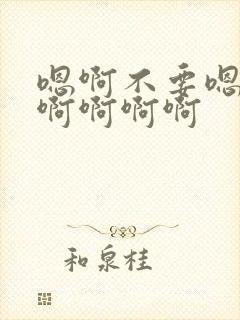 嗯啊不要嗯
啊啊啊啊
和泉桂